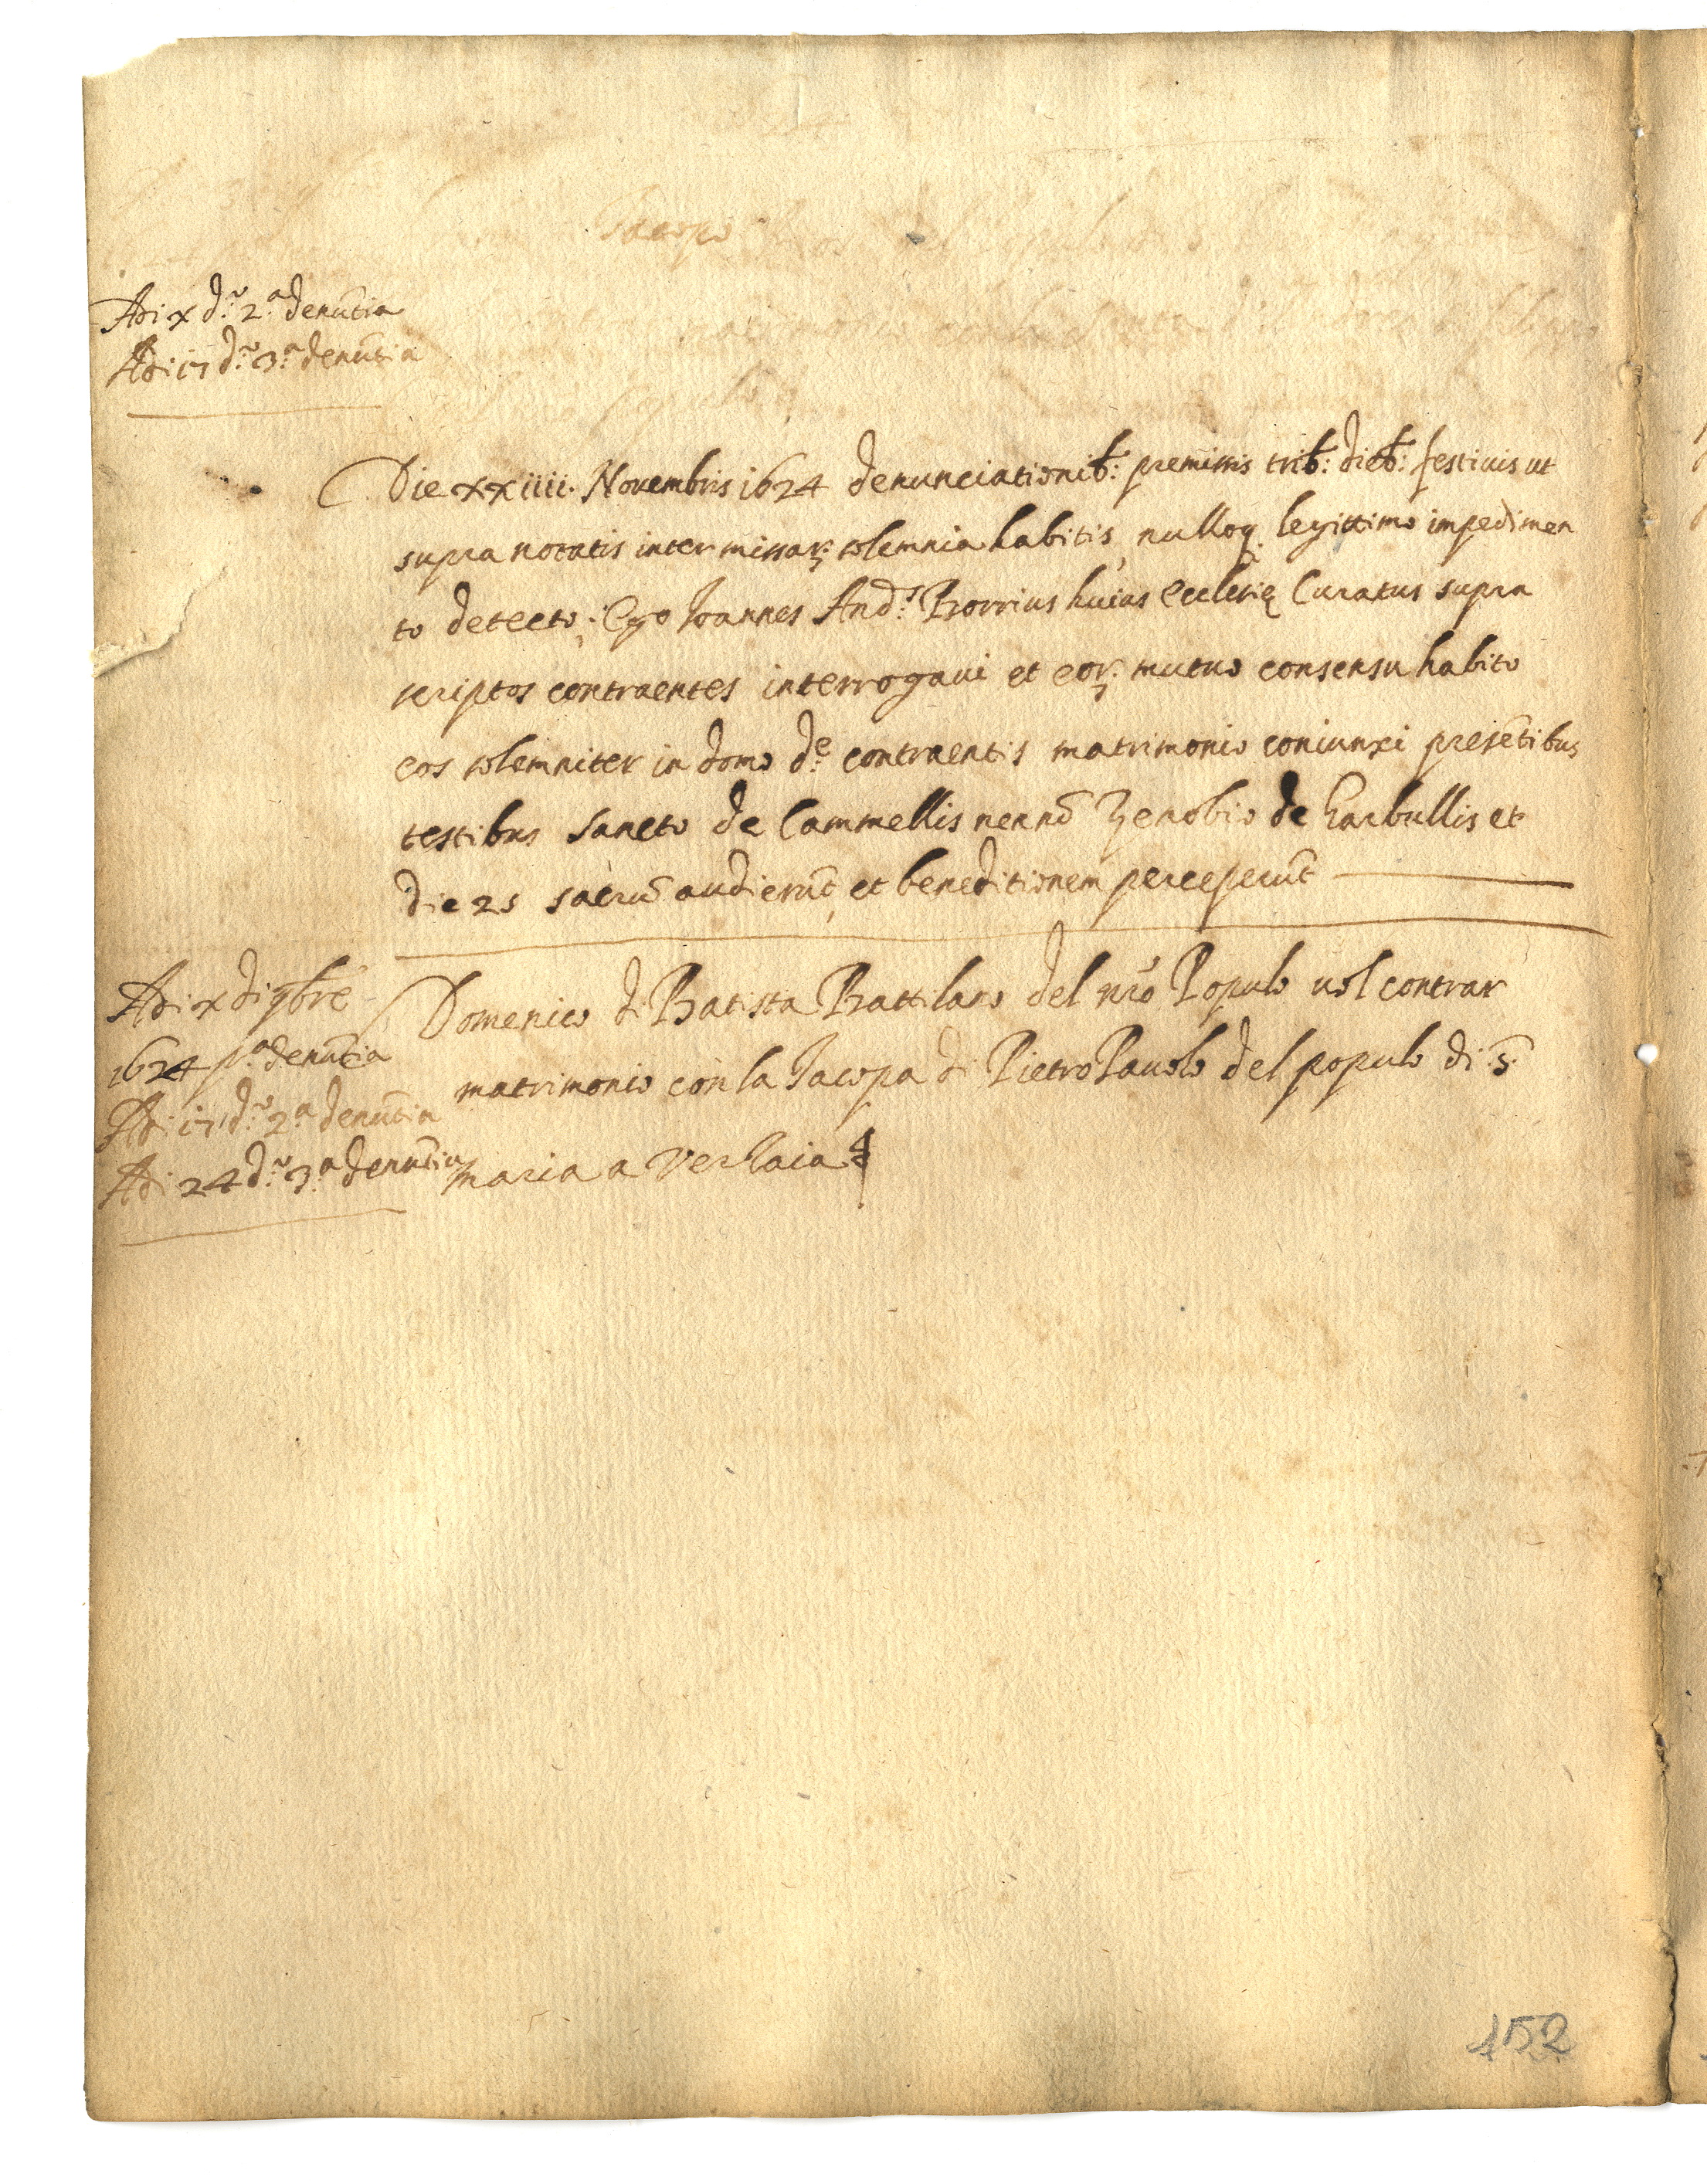 Jacopo
Adi x d.º 2.ª denūtia
Adi 17 d.º 3.ª denūtia
Die xxiiii. Novembris 1624 denunciationib: premissis trib: dieb: festiuis ut
supra notatis inter missar: solemnia habitis, nulloq. legittimo impedimen
to detecto; Ego Joannes And.s Borrius huius Ecclesię Curatus supra
scriptos contraentes interrogaui et eor: mutuo consensu habito
eos solemniter in domo d.e contraentis matrimonio coniunxi presētibus
testibus Sancto de Cammellis nennō Zenobio de Garbullis et
die 25 sacrū audierūt, et beneditionem perceperūt
Adi x di 9bre
1624 p.ª denūtia
Adi 17 d.º 2ª denūtia
Adi 24 d.º 3.ª denūtia
Domenico di Batista Battilano del nrō Popolo uol contrar
matrimonio con la Jacopa di Pietro Pauolo del popolo di S.
maria a Verzaia
152